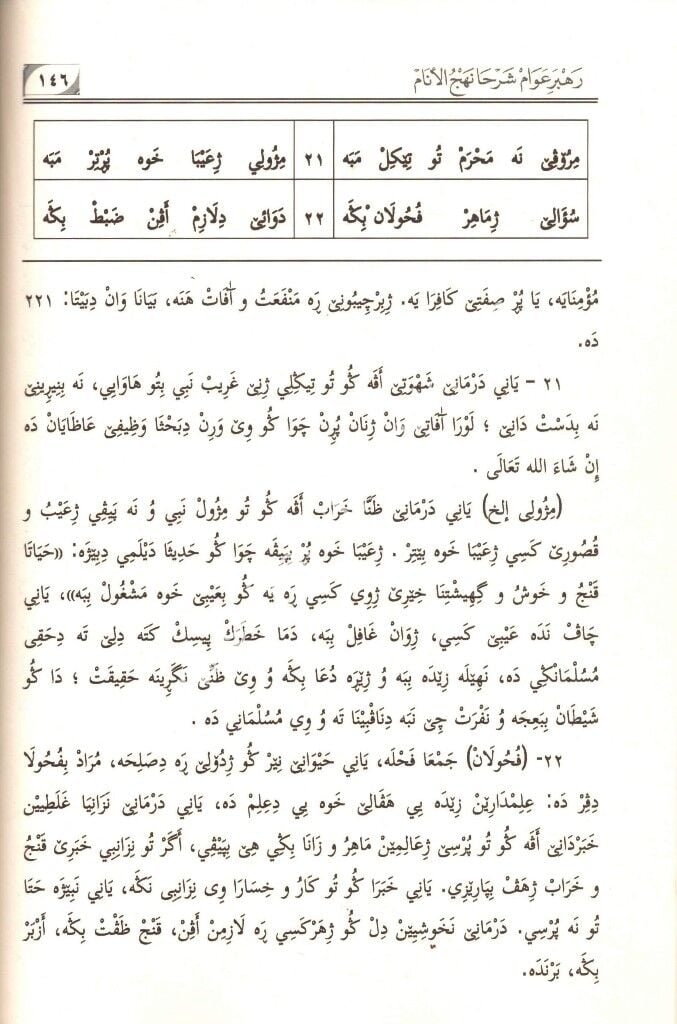 رَهْبَرِ عَوَامْ شَرْحَا نَهْجُ الْأَنَامْ
١٤٦
مِرُوڤِێ نَه مَحْرَمْ تُو تِێكِلْ مَبَه ٢١ مِژُولِي ژِعَيْبَا خَوه پُرْتِرْ مَبَه
سُؤَالِێ ژِمَاهِرْ فُحُولَانْ بِكَه ٢٢ دَوَائِێ دِلَازِمْ اَڤِنْ ضَبْطْ بِكَه
مُؤْمِنَايَه، يَا پُرْ صِفَتِێ كَافِرَا يَه. ژِبِرْچِيبُونِێ رَه مَنْفَعَتْ و آفَاتْ هَنَه، بَيَانَا وَانْ دِبَيْتَا: ٢٢١
دَه.
٢١ - يَانِي دَرْمَانِێ شَهْوَتِێ اَڤَه كُو تُو تِيكَلِي ژِنِێ غَرِيبْ نَبِي بِتُو هَاوَايِي، نَه بِنِيرِينِێ
نَه بِدَسْتْ دَانِێ ؛ لَوْرَا آفَاتِێ وَانْ ژِنَانْ پُرِنْ چَوَا كُو وِێ وَرِنْ دِبَحْثَا وَظِيفِێ عَاظَايَانْ دَه
إِنْ شَاءَ الله تَعَالَى .
(مِژُولِى إلخ) يَانِي دَرْمَانِێ ظَنَّا خَرَابْ اَڤَه كُو تُو مِژُولْ نَبِي وُ نَه پَيِڤِي ژِعَيْبُ و
قُصُورِێ كَسِي ژِعَيْبَا خَوه بِێتِرْ . ژِعَيْبَا خَوه پُرْ بِپَيِڤَه چَوَا كُو حَدِيثَا دَيْلَمِي دِبِێژَه: «حَيَاتَا
قَنْجُ و خَوشُ و گِهِيشْتِنَا خِيْرِێ ژِوِي كَسِي رَه يَه كُو بِعَيْبِێ خَوه مَشْغُولْ بِبَه»، يَانِي
چَاڤْ نَدَه عَيْبِێ كَسِي، ژِوَانْ غَافِلْ بِبَه، دَمَا خَطَرَكْ پِيسِكْ كَتَه دِلِێ تَه دِحَقِى
مُسْلِمَانَكِي دَه، نَهِێلَه زِێدَه بِبَه وُ ژِێرَه دُعَا بِكَه وُ وِێ ظَنِّێ نَگُرِينَه حَقِيقَتْ ؛ دَا كُو
شَيْطَانْ بِبَعِجَه وُ نَفْرَتْ چِێ نَبَه دِنَاڤْبِيْنَا تَه وُ وِي مُسْلِمَانِي دَه .
٢٢- (فُحُولَانْ) جَمْعَا فَحْلَه، يَانِي حَيْوَانِێ نِێرْ كُو ژِدُولِێ رَه دِصَلِحَه، مُرَادْ بِفُحُولَا
دِڤِرْ دَه: عِلِمْدَارِێنْ زِێدَه يِي هَڤَالِێ خَوه يِي دِعِلِمْ دَه، يَانِي دَرْمَانِێ نَزَانِيَا غَلَطِيِّێنْ
خَبَرْدَانِێ اَڤَه كُو تُو پُرْسِێ ژِعَالِمِێنْ مَاهِرْ وُ زَانَا بِكِي هِێ بِپَيِڤِي، اَگَرْ تُو نِزَانِبِي خَبَرِێ قَنْجُ
و خَرَابْ ژِهَڤْ بِپَارِێزِي. يَانِي خَبَرَا كُو تُو كَارُ و خِسَارَا وِى نِزَانِبِى نَكَه، يَانِي نَبِێژَه حَتَا
تُو نَه پُرْسِي. دَرْمَانِێ نَخَوشِيِّێنْ دِلْ كُو ژِهَرْكَسِي رَه لَازِمِنْ اَڤِنْ، قَنْجْ ظَفْتْ بِكَه، اَزْبَرْ
بِكَه، بَرْنَدَه.